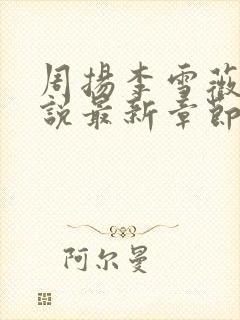 周揚李雪薇
說最新章節
阿尔曼